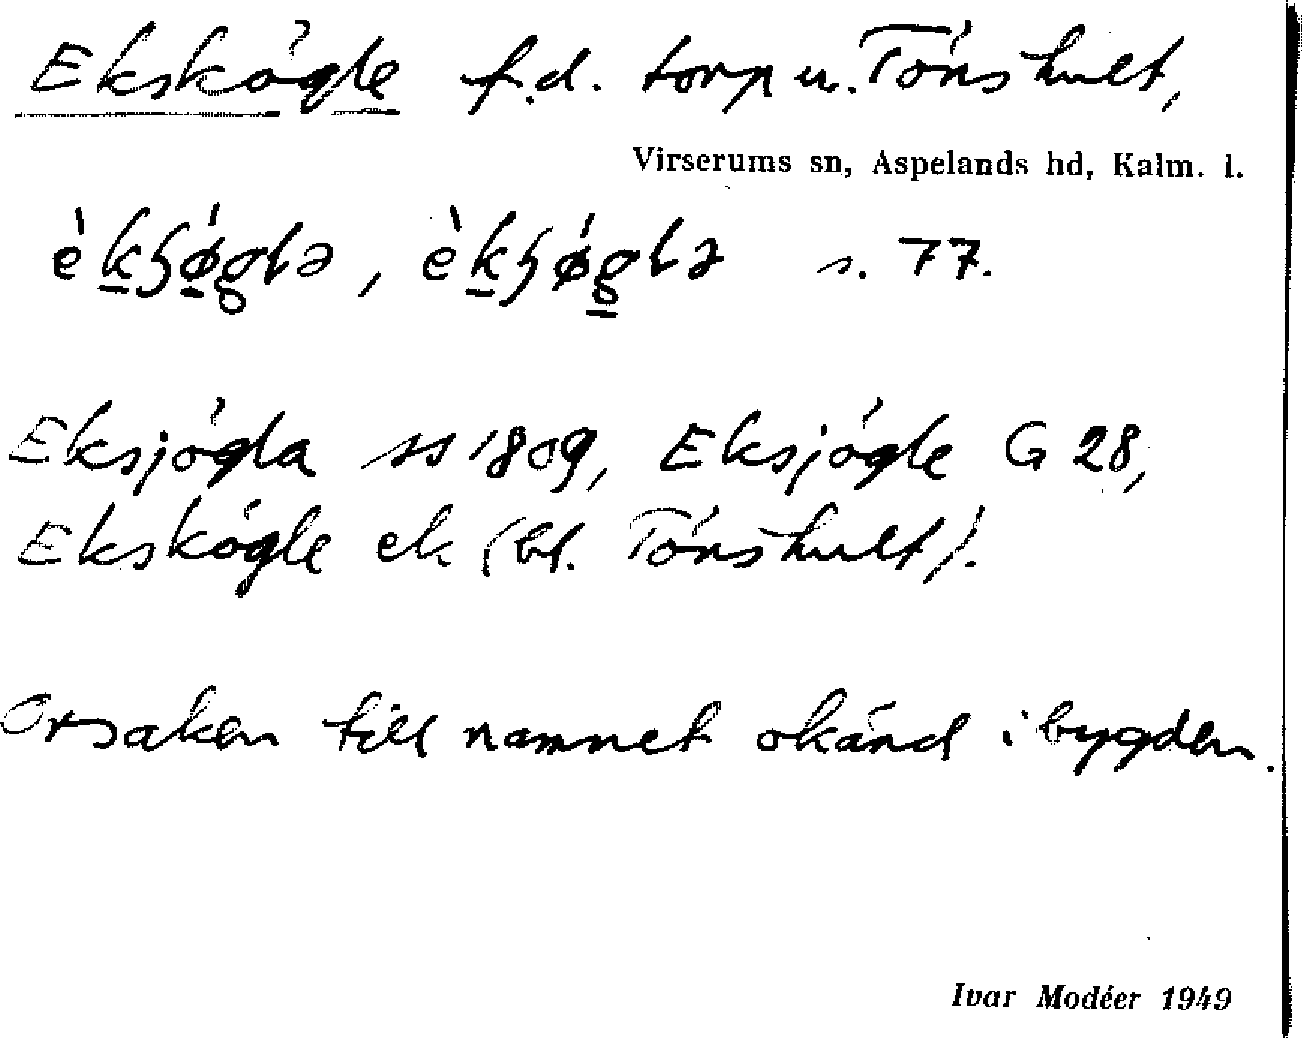 Ekskögle f.d. torp u. Tönshult,
Virserums sn, Aspelands hd, Kalm. l.
èkʂø̀glə, èkʂøglə s. 77.
Eksjögla ss 1809, Eksjögle G 28,
Ekskögle ek (bl. Tönshult).
Orsaken till namnet okänd i bygden.
Ivar Modéer 1949